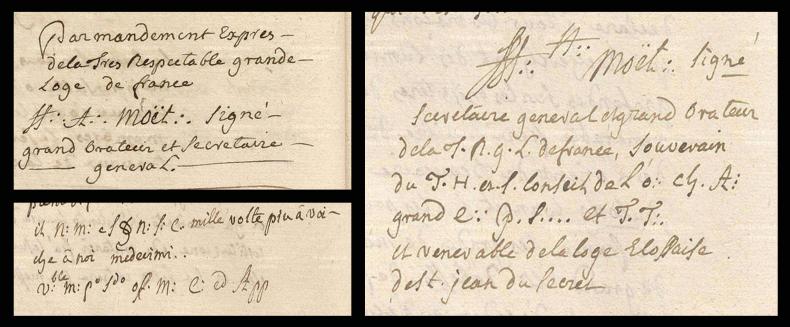 Par mandement Expres –
dela Tres Respectable grande –
Loge de france
ff∴ A∴ Moët∴ signé –
grand Orateur et Secretaire –
general.
il n: m: e S & n: s: c. mille volte piu à voi –
che à noi medesimi. .
v:ble m: po sdo of. m: C: ed App
ff∴ A∴ Moët∴ signé
Secretaire general et grand Orateur
dela T. R. g. L. defrance, Souverain
du T. H. et S. Conseil de L'o∴ ch. A:
grand e∴ p. S.... et T. T∴
et venerable dela loge Elossaise
de st. jean du secret